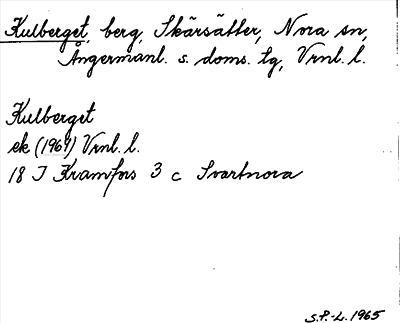 Kulberget, berg, Skärsätter, Nora sn,
Ångermanl. s. doms. tg, Vrnl. l.
Kulberget
ek (1969) Vrnl. l.
18 I Kramfors 3 c Svartnora
S.P.-L. 1965